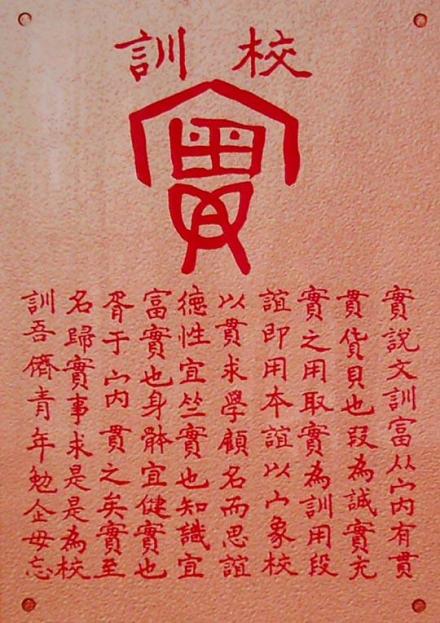 校訓
實
實說文訓富从宀内有貫
貫貨貝也叚為誠實充
實之用取實為訓用叚
誼即用本誼以宀象校
以貫求學顧名而思誼
德性宜竺實也知識宜
富實也身骵宜健實也
胥于宀内貫之矣實至
名歸實事求是是為校
訓吾儕青年勉企毋忘